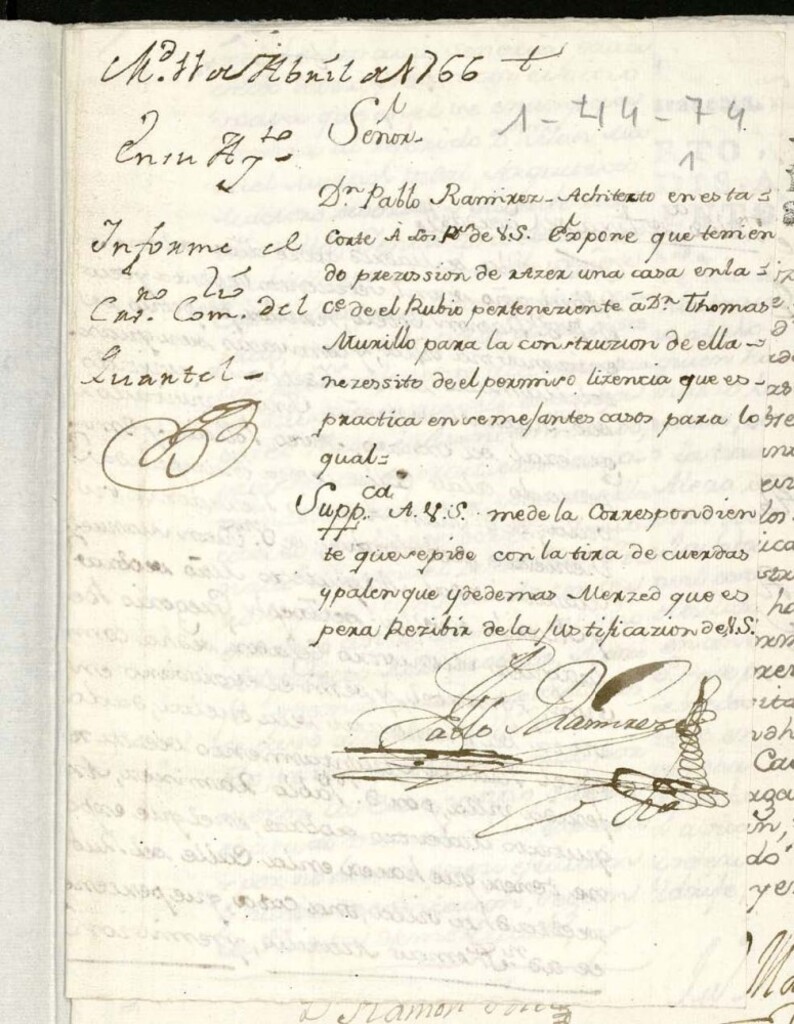 M.d 11 de Abril de 1766 +
En su Ay.to
Informe el
Cav.ro Com.rio del
Quartel -
1-44-74
1
Señor.
D.n Pablo Ramirez - Achitecto en esta =
Corte A Los P.s de V.S. Expone que tenien
do prezission de azer una casa en la =
C.e de el Rubio perteneziente á D.n Thomas
Murillo para la construzion de ella -
nezessito de el permiso lizencia que es -
practica en semejantes casos para lo
qual =
Supp.ca A. V.S. me de la Correspondien
te que se pide con la tira de cuerdas
y palenque y de demas Merzed que es
pera Rezibir de la Justificazion de V.S.
Pablo Ramirez